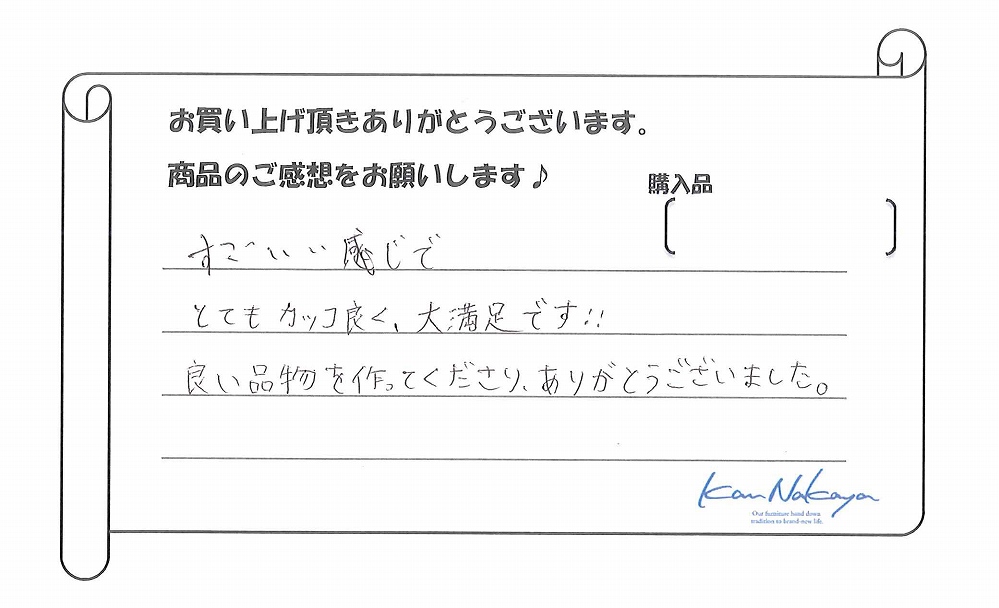 お買い上げ頂きありがとうございます。
商品のご感想をお願いします♪
購入品
すごいいい感じで
とてもカッコ良く、大満足です!!
良い品物を作ってくださり、ありがとうございました。
Kan Nakaya
Our furniture hand down
tradition to brand-new life.